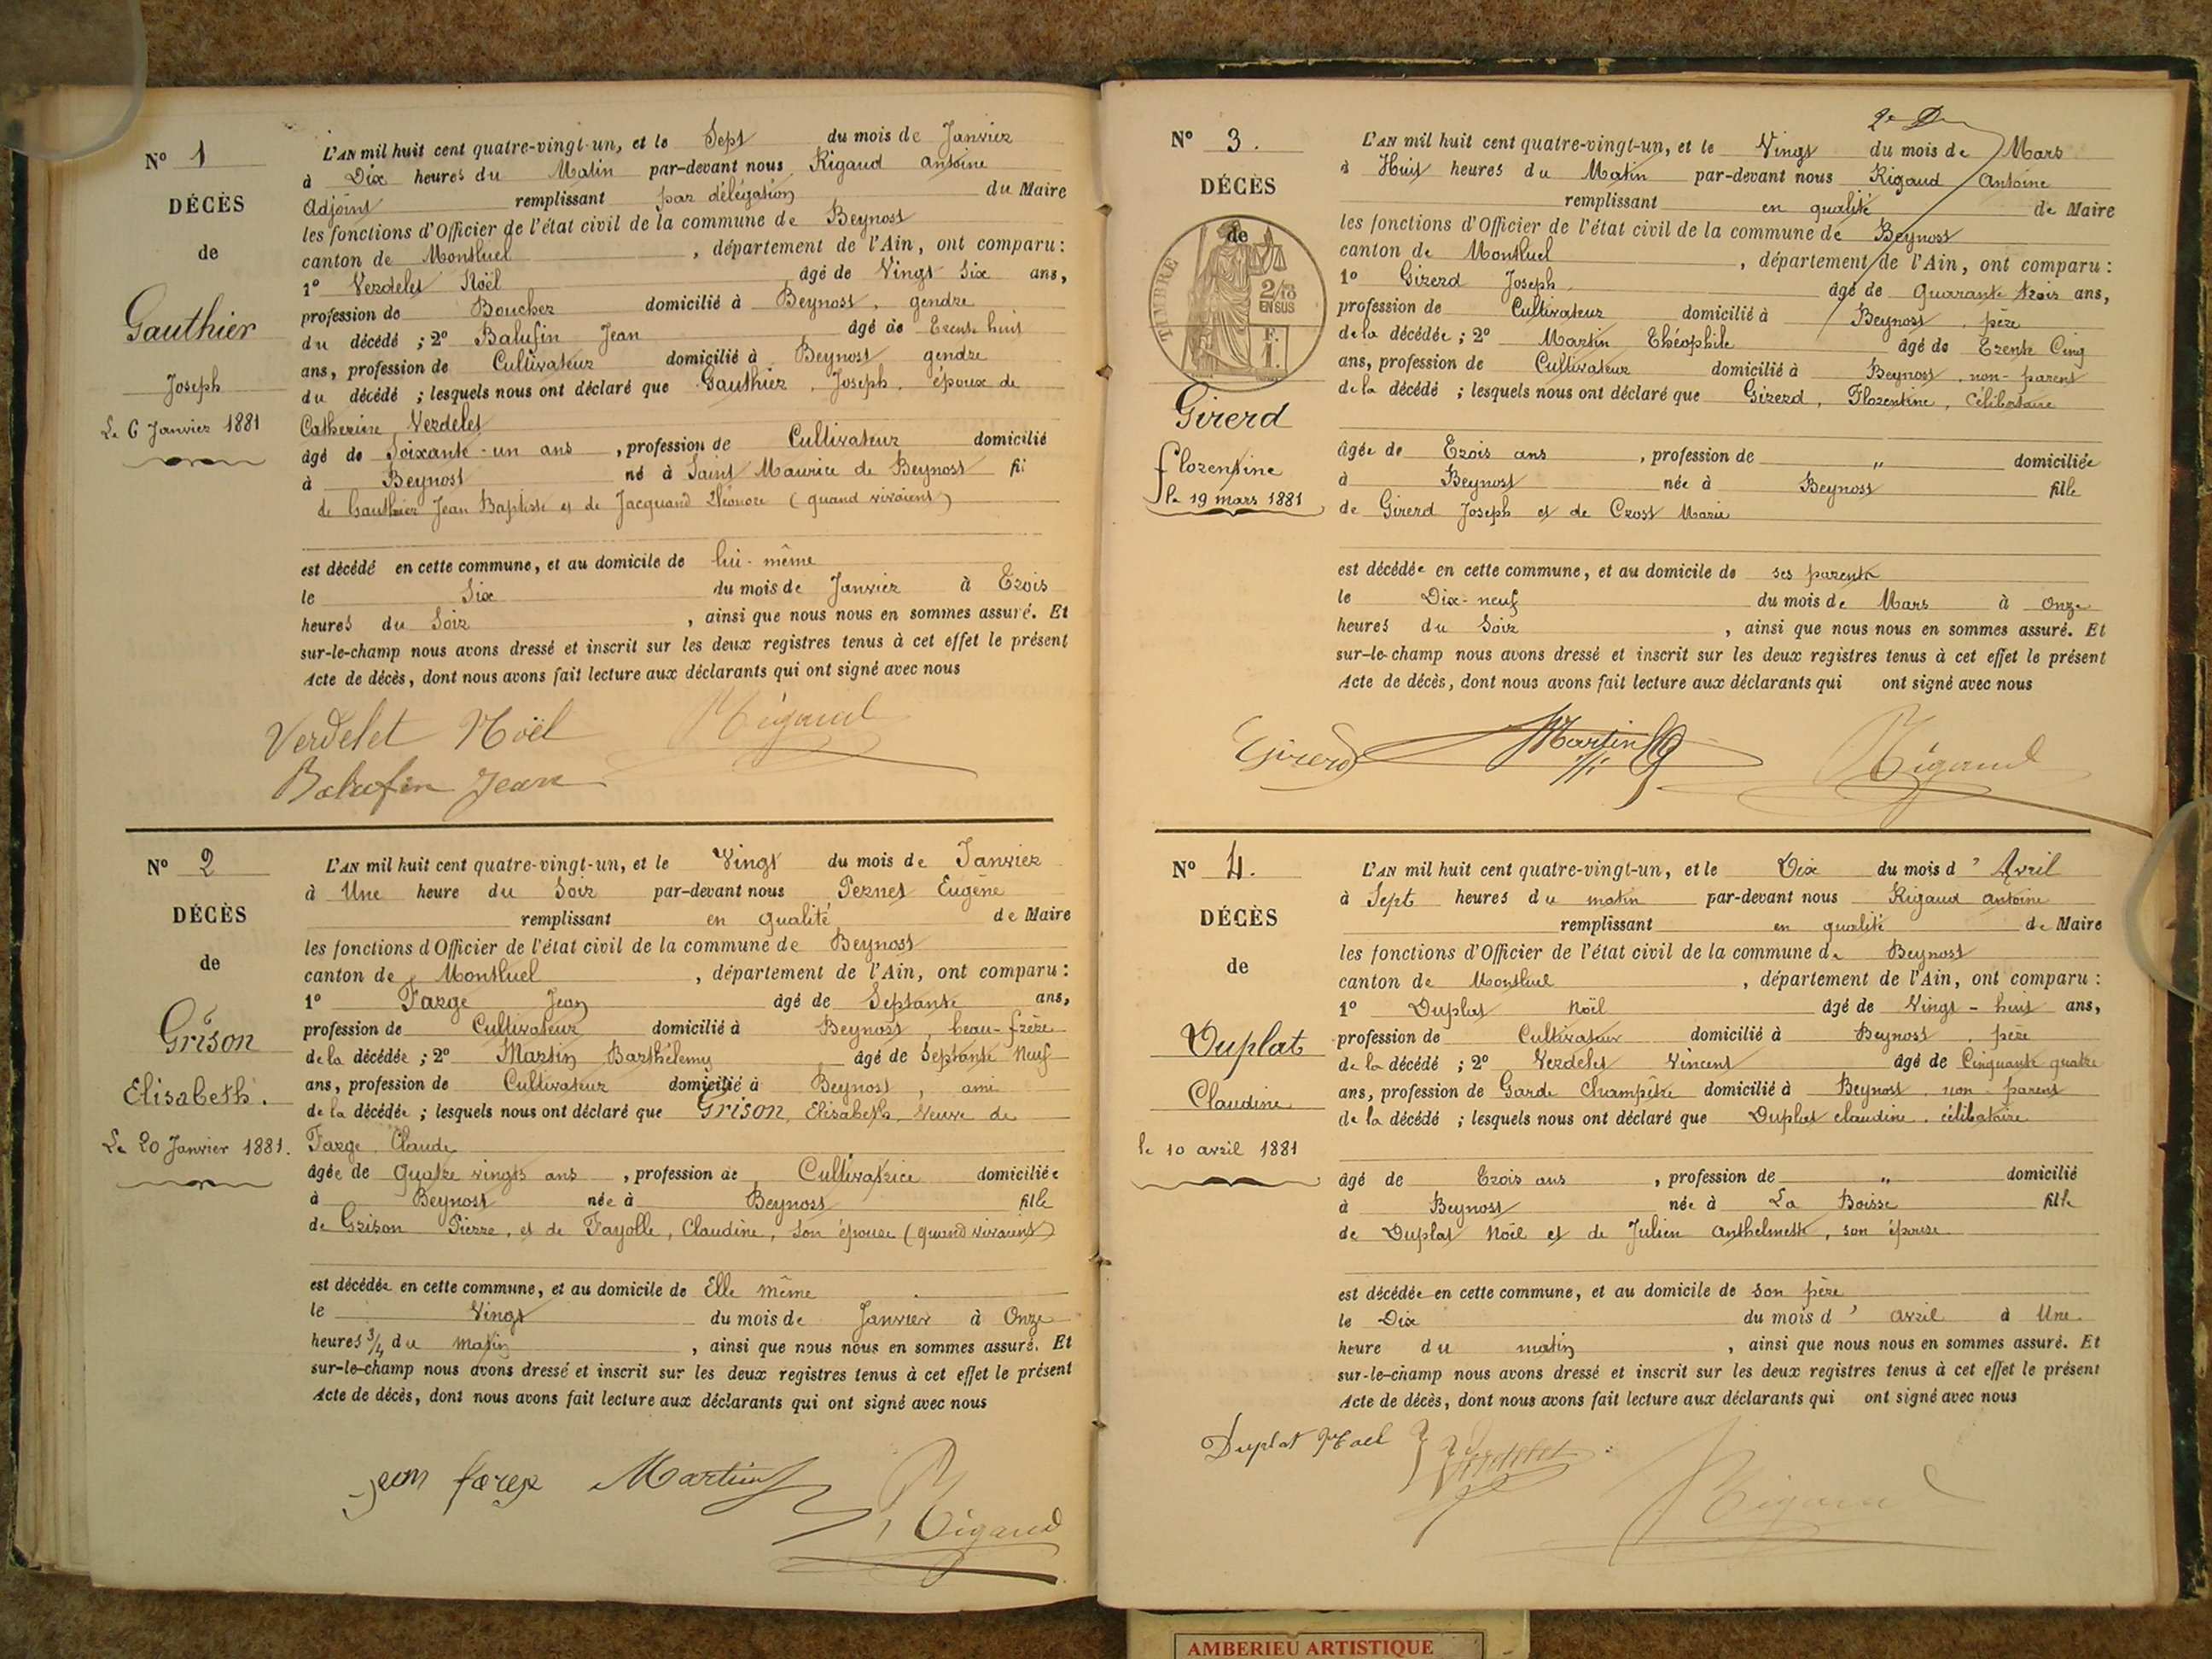 N° 1
DÉCÈS
de
Gauthier
Joseph
Le 6 Janvier 1881
L'AN mil huit cent quatre-vingt-un, et le Sept du mois de Janvier
à Dix heures du Matin par-devant nous Rigaud Antoine
Adjoint remplissant par délégation du Maire
les fonctions d'Officier de l'état civil de la commune de Beynost
canton de Montluel , département de l'Ain, ont comparu :
1° Verdelet Noël âgé de Vingt Six ans,
profession de Boucher domicilié à Beynost, gendre
du décédé ; 2° Balufin Jean âgé de Trente huit
ans, profession de Cultivateur domicilié à Beynost gendre
du décédé ; lesquels nous ont déclaré que Gauthier, Joseph, époux de
Catherine Verdelet
âgé de Soixante-un ans , profession de Cultivateur domicilié
à Beynost né à Saint Maurice de Beynost fils
de Gauthier Jean Baptiste et de Jacquand Léonore (quand vivaient)
est décédé en cette commune, et au domicile de lui-même
le Six du mois de Janvier à Trois
heures du Soir , ainsi que nous nous en sommes assuré. Et
sur-le-champ nous avons dressé et inscrit sur les deux registres tenus à cet effet le présent
Acte de décès, dont nous avons fait lecture aux déclarants qui ont signé avec nous
Verdelet Noël Rigaud
Balufin Jean
N° 2
DÉCÈS
de
Grison
Elisabeth.
Le 20 Janvier 1881.
L'AN mil huit cent quatre-vingt-un, et le Vingt du mois de Janvier
à Une heure du Soir par-devant nous Pernet Eugène
remplissant en qualité de Maire
les fonctions d'Officier de l'état civil de la commune de Beynost
canton de Montluel , département de l'Ain, ont comparu :
1° Farge Jean âgé de Septante ans,
profession de Cultivateur domicilié à Beynost, beau-frère
de la décédée ; 2° Martin Barthélemy âgé de Septante Neuf
ans, profession de Cultivateur domicilié à Beynost, ami
de la décédée ; lesquels nous ont déclaré que Grison, Elisabeth, Veuve de
Farge Claude
âgée de Quatre vingts ans , profession de Cultivatrice domiciliée
à Beynost née à Beynost fille
de Grison Pierre, et de Fayolle, Claudine, son épouse (quand vivaient)
est décédée en cette commune, et au domicile de Elle même
le Vingt du mois de Janvier à Onze
heures 3/4 du Matin , ainsi que nous nous en sommes assuré. Et
sur-le-champ nous avons dressé et inscrit sur les deux registres tenus à cet effet le présent
Acte de décès, dont nous avons fait lecture aux déclarants qui ont signé avec nous
Jean farge Martin Rigaud
N° 3.
DÉCÈS
de
TIMBRE
2/10
EN SUS
F.
1.
Girerd
florentine
le 19 mars 1881
L'AN mil huit cent quatre-vingt-un, et le Vingt du mois de Mars
à Huit heures du Matin par-devant nous Rigaud Antoine
remplissant en qualité de Maire
les fonctions d'Officier de l'état civil de la commune de Beynost
canton de Montluel , département de l'Ain, ont comparu :
1° Girerd Joseph. âgé de Quarante trois ans,
profession de Cultivateur domicilié à Beynost, père
de la décédée ; 2° Martin Théophile âgé de Trente Cinq
ans, profession de Cultivateur domicilié à Beynost, non-parent
de la décédé ; lesquels nous ont déclaré que Girerd, Florentine, célibataire
âgée de Trois ans , profession de " domiciliée
à Beynost née à Beynost fille
de Girerd Joseph et de Crost Marie
est décédée en cette commune, et au domicile de ses parents
le Dix-neuf du mois de Mars à Onze
heures du Soir , ainsi que nous nous en sommes assuré. Et
sur-le-champ nous avons dressé et inscrit sur les deux registres tenus à cet effet le présent
Acte de décès, dont nous avons fait lecture aux déclarants qui ont signé avec nous
Girerd Martin Rigaud
N° 4.
DÉCÈS
de
Duplat
Claudine
le 10 avril 1881
L'AN mil huit cent quatre-vingt-un, et le Dix du mois d' Avril
à Sept heures du matin par-devant nous Rigaud Antoine
remplissant en qualité de Maire
les fonctions d'Officier de l'état civil de la commune de Beynost
canton de Montluel , département de l'Ain, ont comparu :
1° Duplat Noël âgé de Vingt-huit ans,
profession de Cultivateur domicilié à Beynost, père
de la décédé ; 2° Verdelet Vincent âgé de Cinquante quatre
ans, profession de Garde Champêtre domicilié à Beynost non parent
de la décédé ; lesquels nous ont déclaré que Duplat claudine, célibataire
âgé de Trois ans , profession de " domicilié
à Beynost née à La Boisse fille
de Duplat Noël et de Julien Anthelmette, son épouse
est décédée en cette commune, et au domicile de son père
le Dix du mois d' avril à Une
heure du matin , ainsi que nous nous en sommes assuré. Et
sur-le-champ nous avons dressé et inscrit sur les deux registres tenus à cet effet le présent
Acte de décès, dont nous avons fait lecture aux déclarants qui ont signé avec nous
Duplat Noel Verdelet Rigaud
AMBERIEU ARTISTIQUE